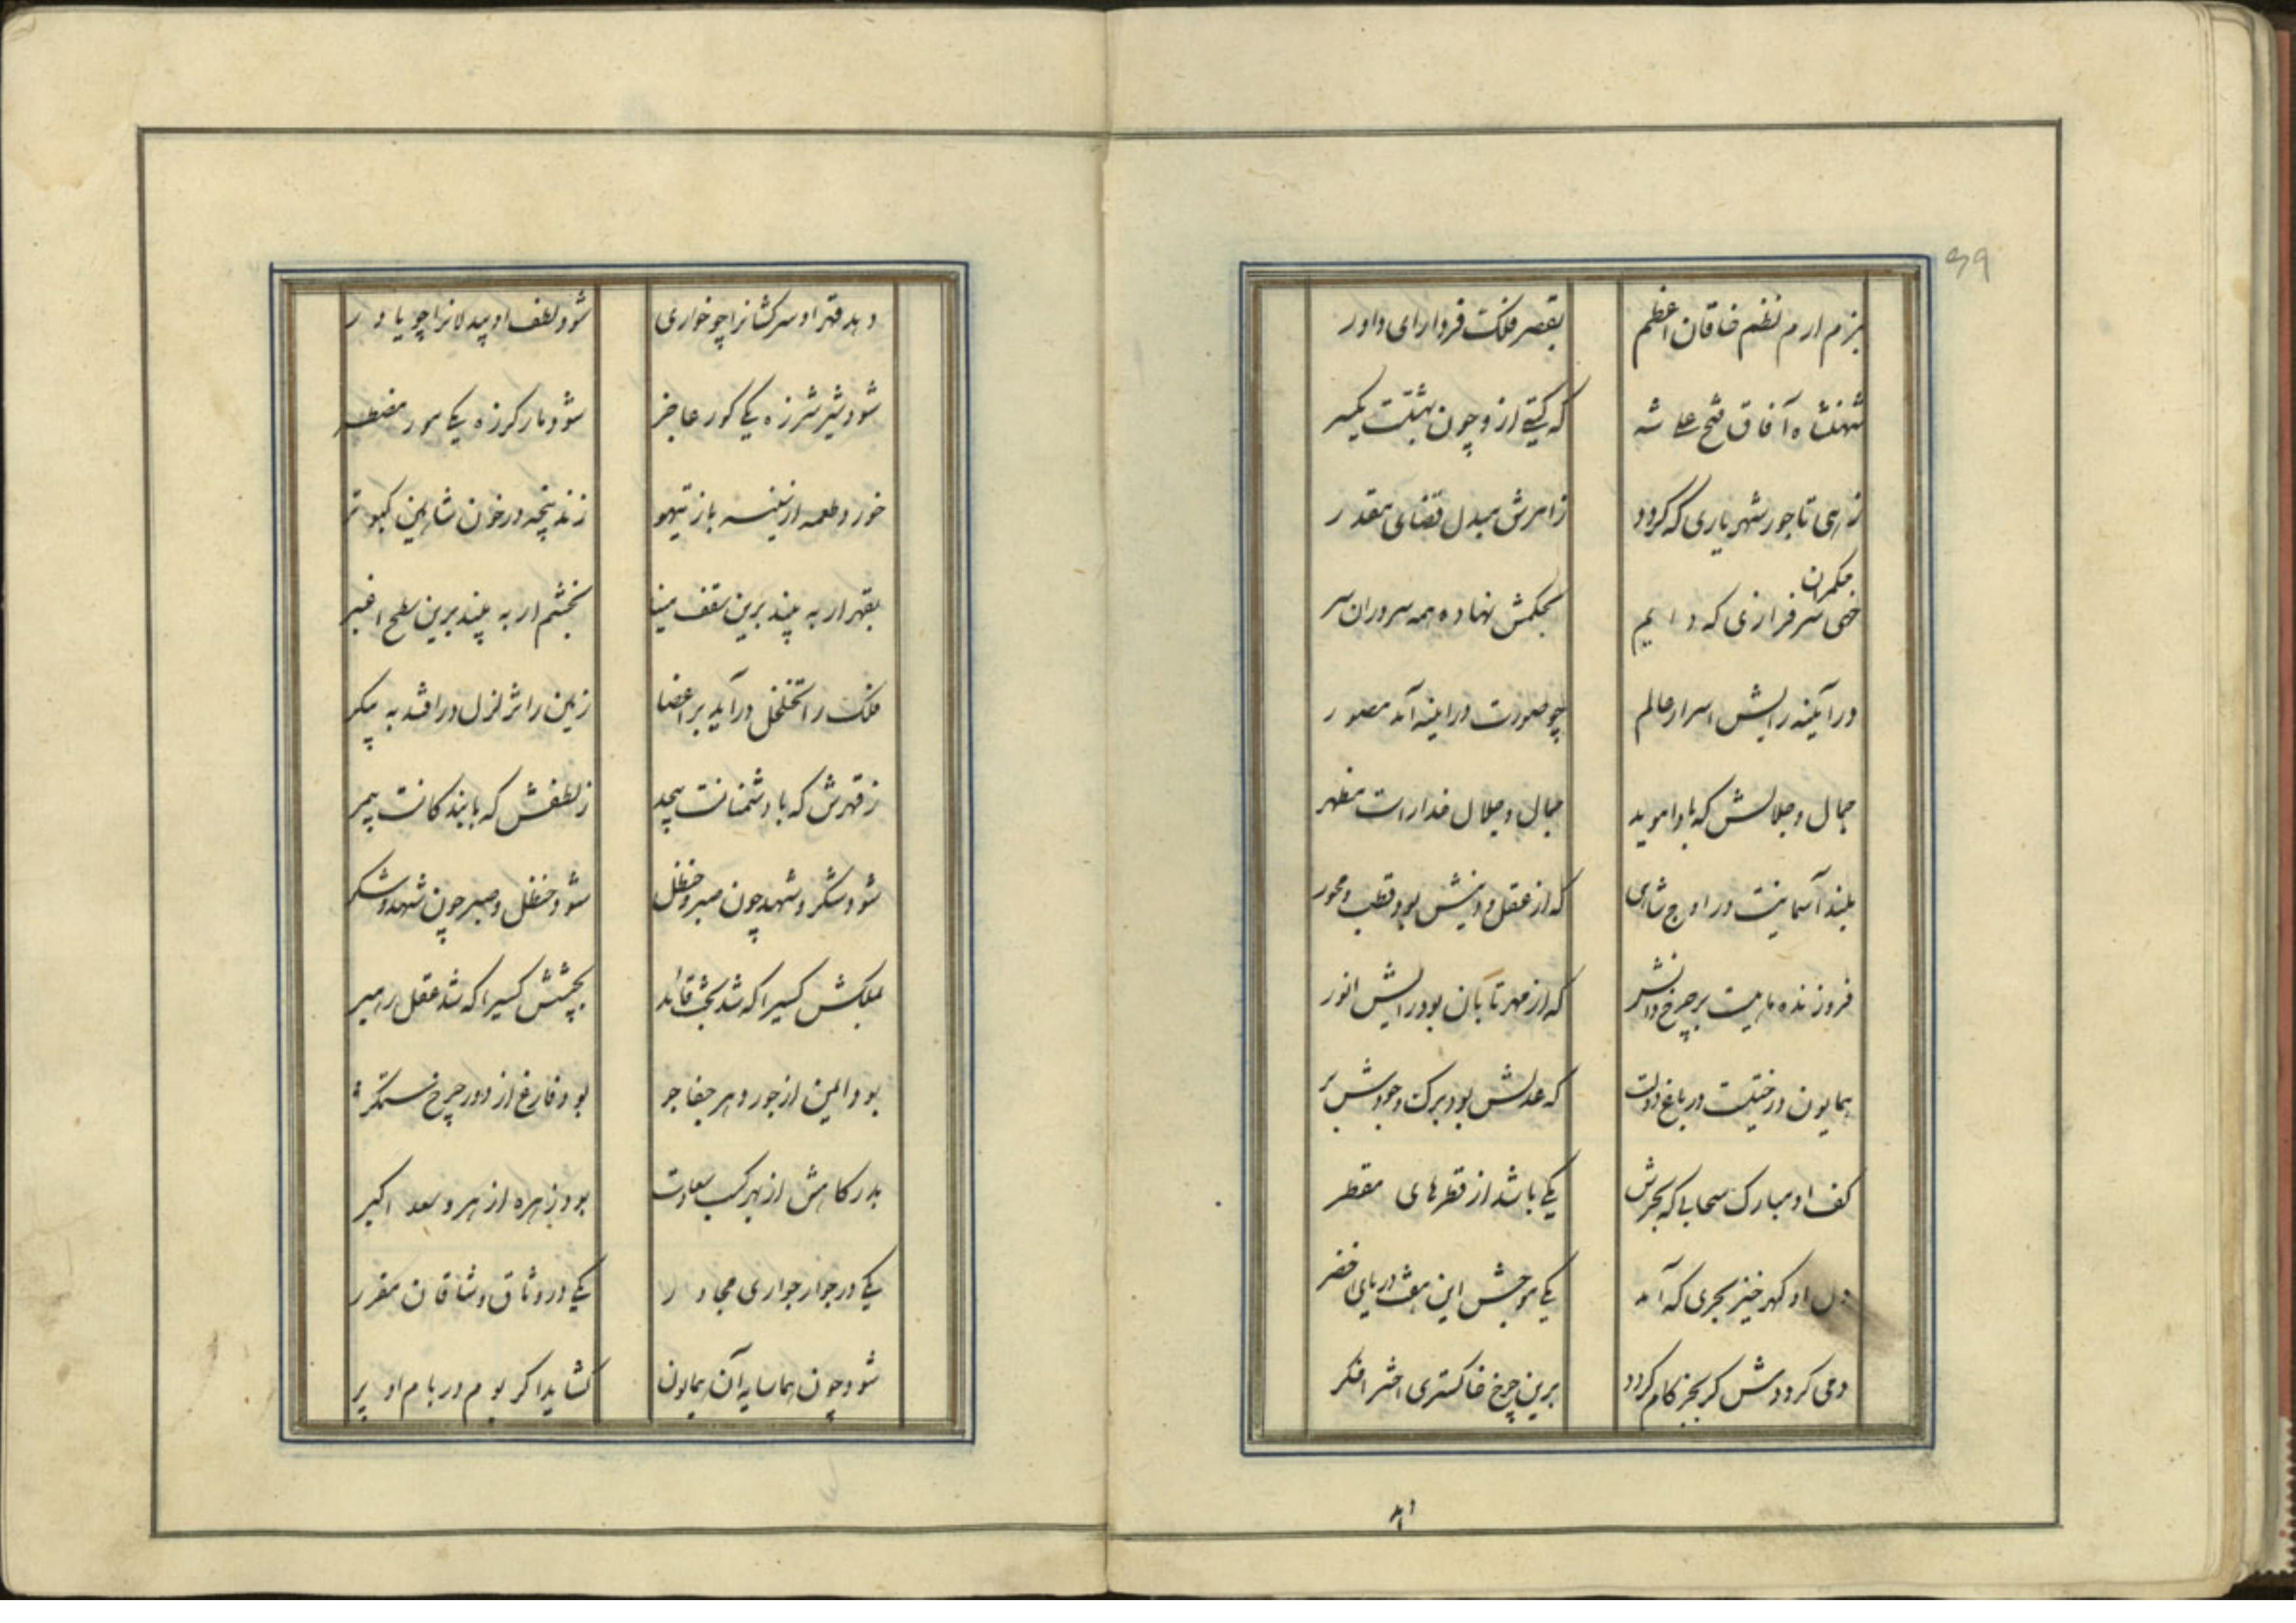 39
بزم ارم نظم خاقان اعظم بقصر فلک فر دارای داور
شهنشاه آفاق فتحعلی شه که گیتی ازو چون بهشتست یکسر
زهی تاجور شهریاری که گردد ز امرش مبدل قضای مقدر
حکمران
خهی سرفرازی که دایم بحکمش نهاده همه سروران سر
در آئینه رایش اسرار عالم چو صورت در اینه آمد مصور
جمال و جلالش که بادا موید جمال و جلال خدا راست مظهر
بلند آسمانیست در اوج شاهی که از عقل و دانش بود قطب و محور
فروزنده ماهیست بر چرخ دانش که از مهر تابان بود رایش انور
همایون درختیست در باغ دولت که عدلش بود برک و جودش بر
کف او مبارک سحابی که بحرش یکی باشد از قطرهای مقطر
دل او گهرخیز بحری که آمد یکی موجش این هفت دریای اخضر
دمی کردودش کر بجز کام گردد برین چرخ خاکستری اختر اخگر
دهد
دهد قهر او سرکشانرا چو خواری شود لطف او بیدلانرا چو یاور
شود شیر شرزه یکی گور عاجز شود مار کرزه یکی مور مضطر
خورد طعمه از سینه باز تیهو زند پنجه در خون شاهین کبوتر
بقهر ار به بیند برین سقف مینا بخشم ار به بیند برین سطح اغبر
فلک را تخلخل درآید بر اعضا زمین را تزلزل در افتد به پیکر
ز قهرش که با دشمنانت بیحد ز لطفش که با بندکانت بیمر
شود شکر و شهد چون صبر و حنظل شود حنظل و صبر چون شهد و شکر
بملکش کسیرا که شد بخت قائد بچشمش کسیرا که شد عقل رهبر
بود ایمن از جور دهر جفاجو بود فارغ از دور چرخ ستمگر
بدرکاهش از بهر کسب سعادت بود زهره از بهر و سعد اکبر
یکی در جوار جواری مجاور یکی در وثاق وشاقان مقرر
شود چون هما سایه آن همایون کشاید اکر بوم در بام او پر